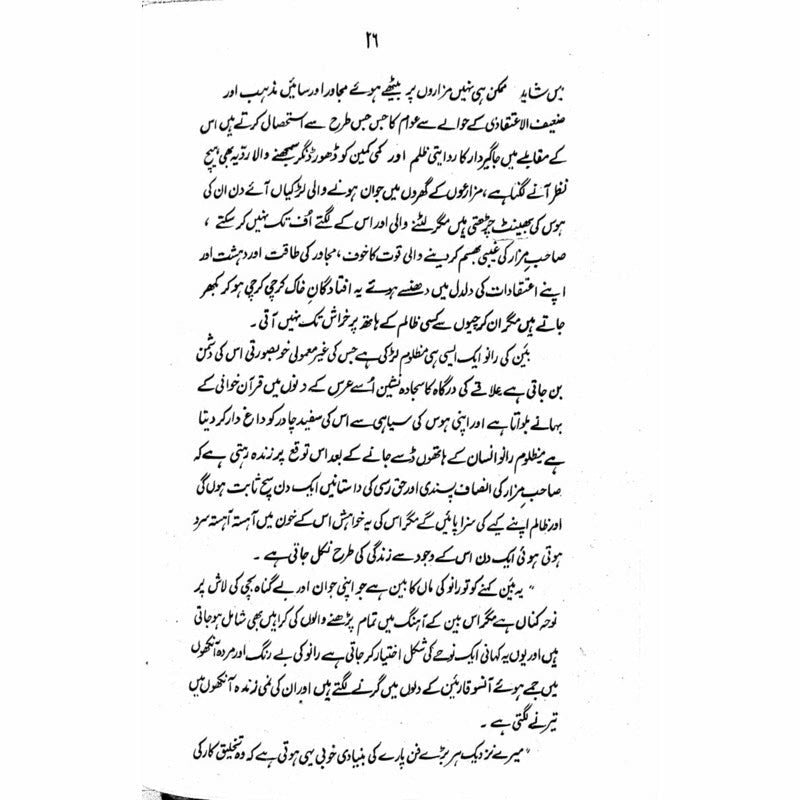 ۲۶
میں شاید ممکن ہی نہیں مزاروں پر بیٹھے ہوئے مجاور اور سائیں مذہب اور
ضعیف الاعتقادی کے حوالے سے عوام کا جس جس طرح سے استحصال کرتے ہیں اس
کے مقابلے میں جاگیردار کا روایتی ظلم اور کمی کمین کو ڈھور ڈنگر سمجھنے والا ردیہ بھی ہیچ
نظر آنے لگتا ہے، مزارعوں کے گھروں میں جوان ہونے والی لڑکیاں آئے دن ان کی
ہوس کی بھینٹ چڑھتی ہیں مگر لٹنے والی اور اس کے لگتے اُف تک نہیں کر سکتے ،
صاحب مزار کی غیبی بھسم کر دینے والی قوت کا خوف ، مجاور کی طاقت اور دہشت اور
اپنے اعتقادات کی دلدل میں دھنسے ہوئے یہ افتادگانِ خاک کرچی کرچی ہو کر بکھر
جاتے ہیں مگر ان کرچیوں سے کسی ظالم کے ہاتھ پر خراش تک نہیں آتی ۔
بَین کی رانو ایک ایسی ہی مظلوم لڑکی ہے جس کی غیر معمولی خوبصورتی اس کی دشمن
بن جاتی ہے علاقے کی درگاہ کا سجادہ نشین اُسے عرس کے دنوں میں قرآن خوانی کے
بہانے بلواتا ہے اور اپنی ہوس کی سیاہی سے اس کی سفید چادر کو داغ دار کر دیتا
ہے مظلوم رانو انسان کے ہاتھوں ڈسے جانے کے بعد اس توقع پر زندہ رہتی ہے کہ
صاحبِ مزار کی انصاف پسندی اور حق رسی کی داستانیں ایک دن سچ ثابت ہوں گی
اور ظالم اپنے کیے کی سزا پائیں گے مگر اس کی یہ خواہش اس کے خون میں آہستہ آہستہ سرد
ہوتی ہوئی ایک دن اس کے وجود سے زندگی کی طرح نکل جاتی ہے ۔
" یہ بَین کہنے کو تو رانو کی ماں کا بین ہے جو اپنی جوان اور بے گناہ بچی کی لاش پر
نوحہ کناں ہے مگر اس بین کے آہنگ میں تمام پڑھنے والوں کی کراہیں بھی شامل ہو جاتی
ہیں اور یوں یہ کہانی ایک نوحے کی شکل اختیار کر جاتی ہے رانو کی بے رنگ اور مردہ آنکھوں
میں جمے ہوئے آنسو قارئین کے دلوں میں گرنے لگتے ہیں اور ان کی نمی زندہ آنکھوں میں
تیرنے لگتی ہے ۔
" میرے نزدیک ہر بڑے فن پارے کی بنیادی خوبی یہی ہوتی ہے کہ وہ تخلیق کار کی